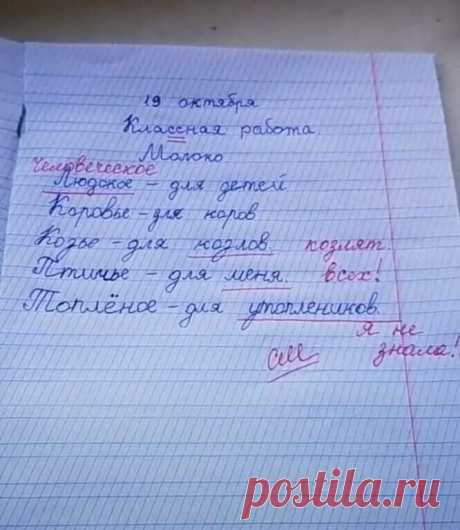 19 октября
Классная работа.
Молоко
человеческое
Людское - для детей
Коровье - для коров
Козье - для козлов. козлят.
Птичье - для меня. всех!
Топлёное - для утоплеников.
я не
см знала!
postila.ru